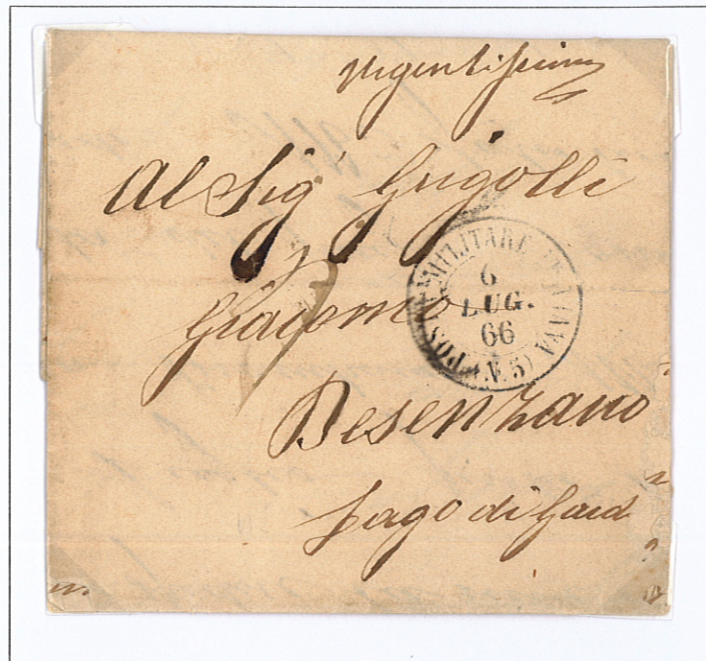 urgentissima
Al Sig.r Grigolli
Giacomo
Desenzano
Lago di Gard
POSTA MILITARE ITALIANA (N.5)
6
LUG.
66